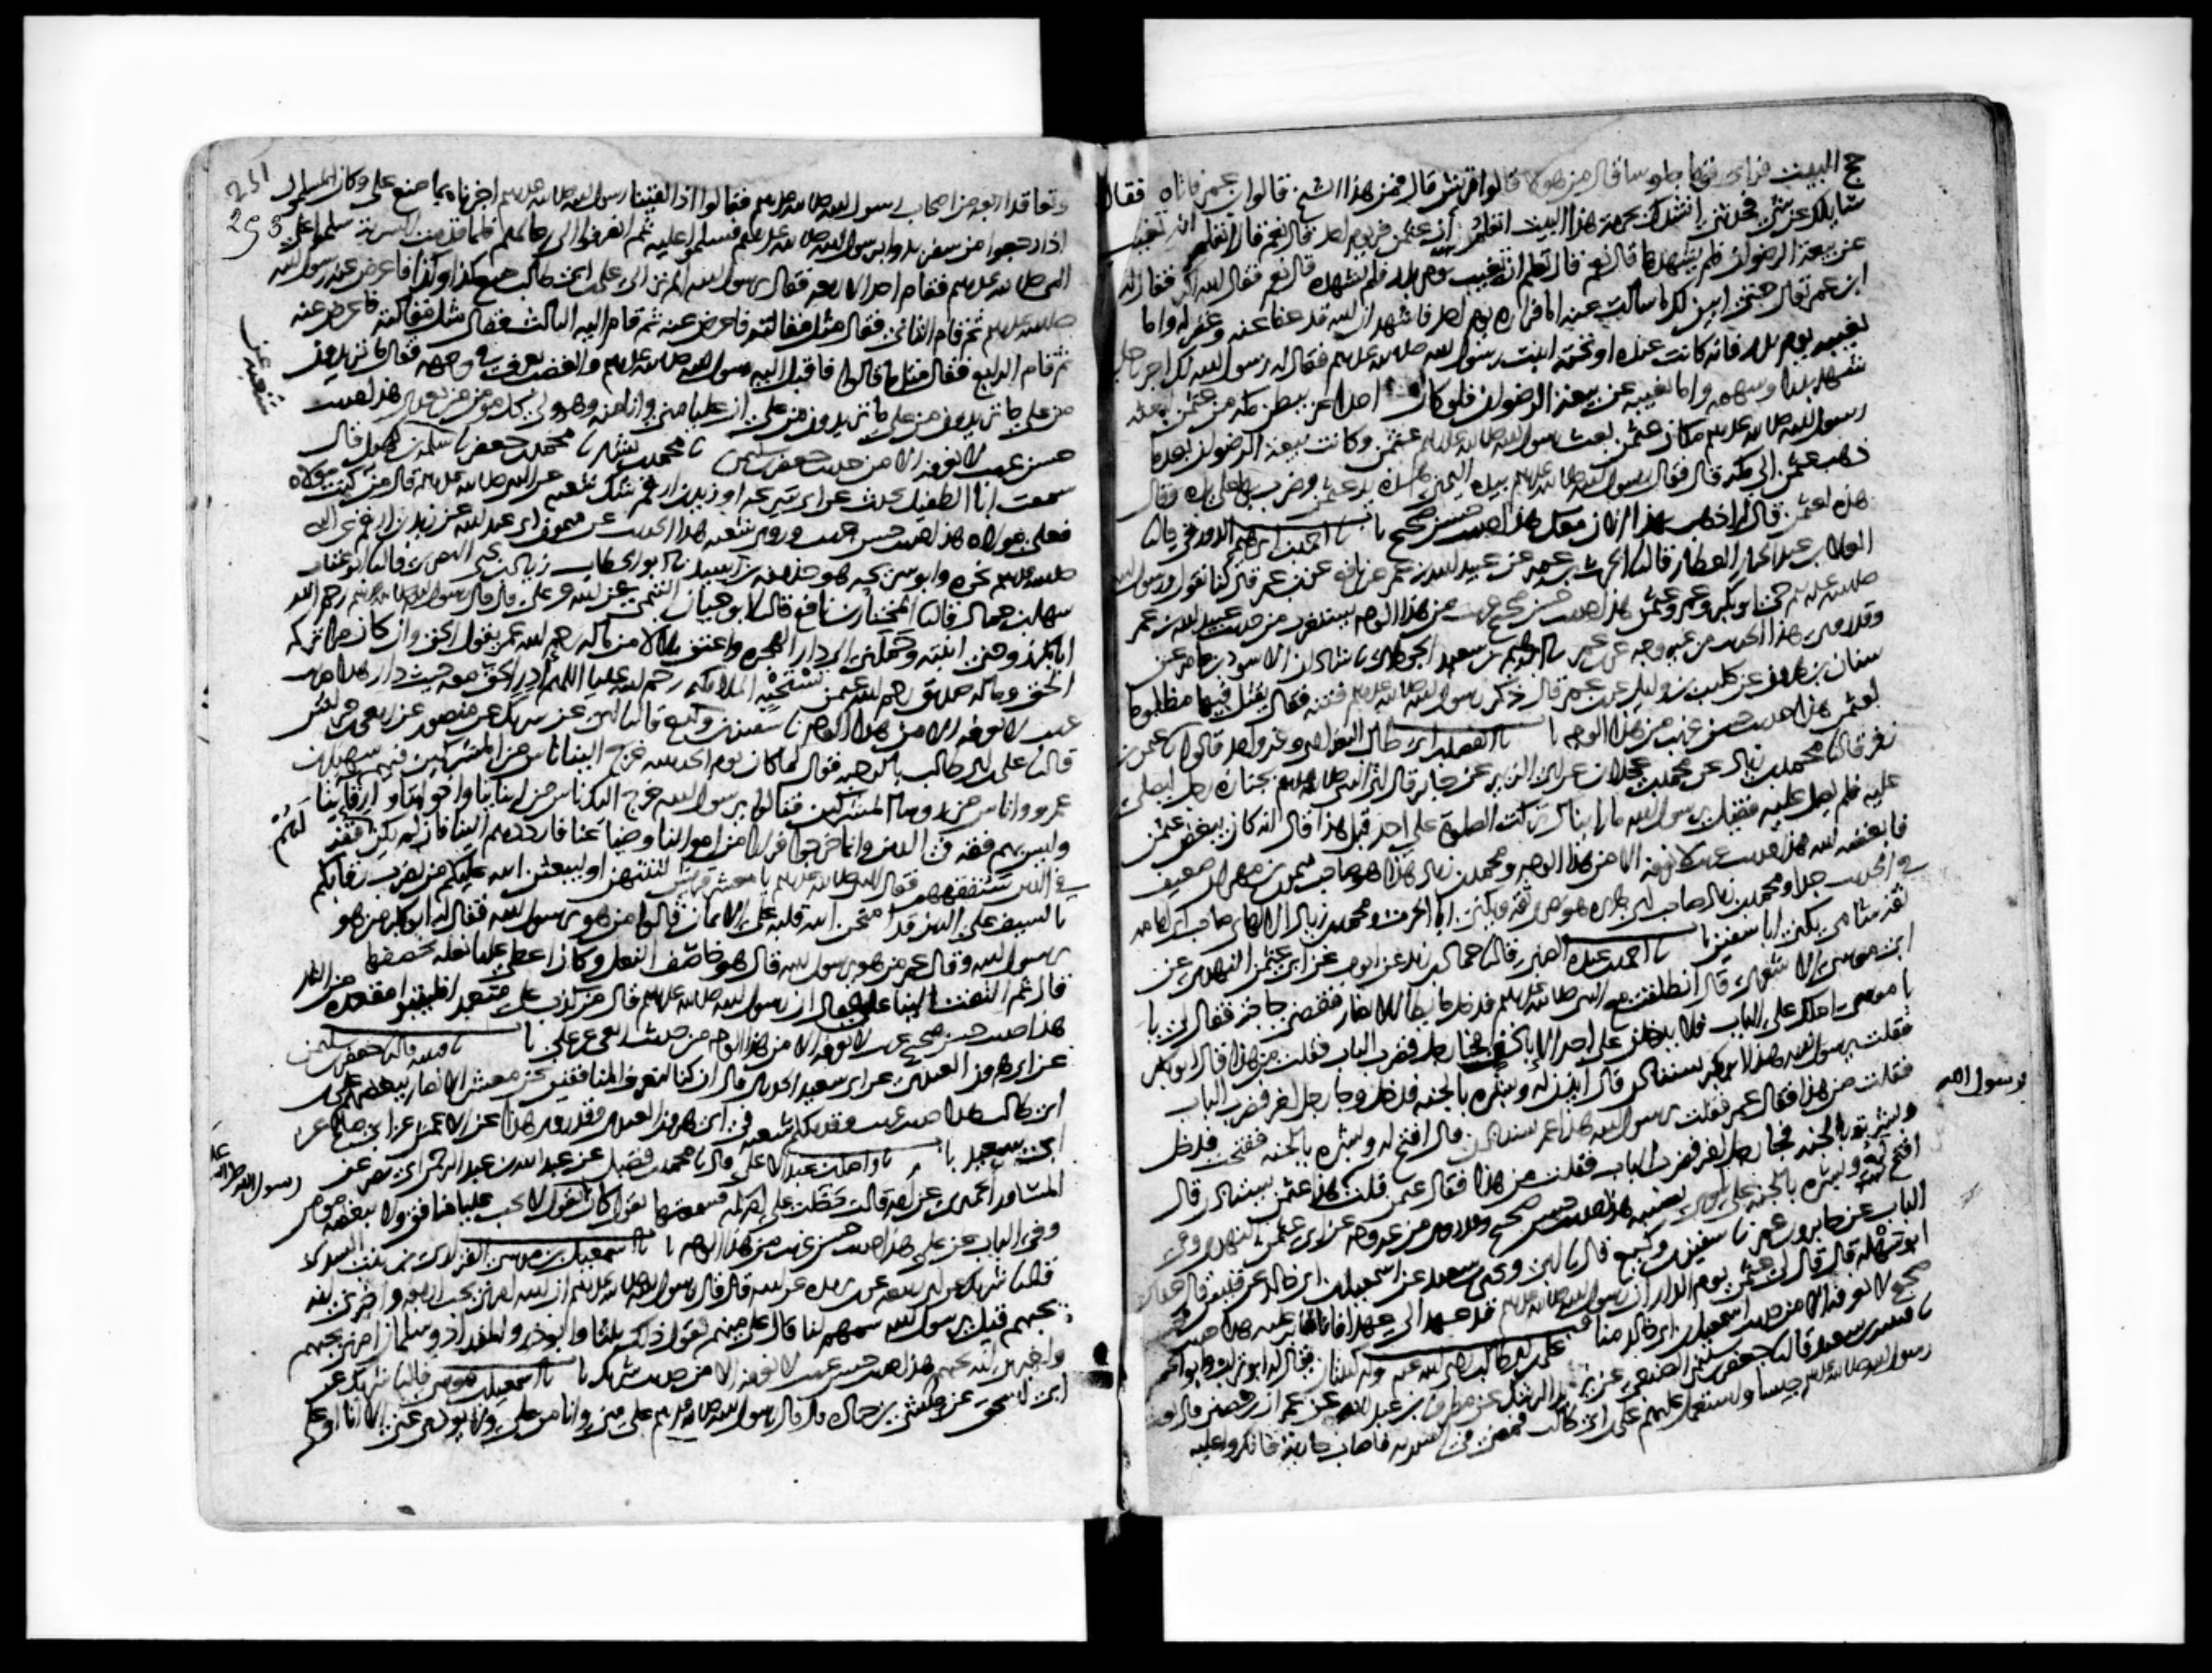 حج البيت فراى قوما جلوسا قال من هولا قالوا قريش قال فمن هذا الشيخ قالوا بن عمر فاتاه فقال
سايلك عن شي فحدثني انشدك بحرمة هذا البيت اتعلم ان عثمن فر يوم احد قال نعم قال اتعلم انه تغيب
عن بيعة الرضوان فلم يشهدها قال نعم قال تعلم انه تغيب يوم بدر فلم يشهده قال نعم فقال الله اكبر فقال له
ابن عمر تعال حتى ابين لك ما سالت عنه اما فراره يوم احد فاشهد ان الله قد عفا عنه وغفر له واما
تغيبه يوم بدر فانه كانت عنده او تحته ابنت رسول الله صلى الله عليه وسلم فقال له رسول الله لك اجر رجل
شهد بدرا وسهمه واما تغيبه عن بيعة الرضوان فلو كان احد اعز ببطن مكة من عثمن لبعثه
رسول الله صلى الله عليه وسلم مكان عثمن بعث رسول الله صلى الله عليه وسلم عثمن وكانت بيعة الرضوان بعد ما
ذهب عثمن الى مكة قال فقال رسول الله صلى الله عليه وسلم بيده اليمنى هذه يد عثمن وضرب بها على يده وقال
هذه لعثمن قال له اذهب بهذا الان معك هذا حديث حسن صحيح نا احمد بن ابرهيم الدورقي قالنا
العلا بن عبد الجبار العطار قالنا الحرث بن عمير عن عبيد الله بن عمر عن نافع عن بن عمر قال كنا نقول ورسول الله
صلى الله عليه وسلم حي ابو بكر وعمر وعثمن هذا حديث حسن صحيح غريب من هذا الوجه يستغرب من حديث عبيد الله بن عمر
وقد روي هذا الحديث من غير وجه عن بن عمر نا ابرهيم بن سعيد الجوهري نا شاذان الاسود بن عامر عن
سنان بن هرون عن كليب بن وايل عن بن عمر قال ذكر رسول الله صلى الله عليه وسلم فتنة فقال يقتل فيها مظلوما
لعثمن هذا حديث حسن غريب من هذا الوجه نا الفضل بن ابي طالب البغدادي وغير واحد قالوا نا عثمن بن
زفر قالنا محمد بن زياد عن محمد بن عجلان عن ابي الزبير عن جابر قال اتي النبي صلى الله عليه وسلم بجنازة رجل ليصلي
عليه فلم يصل عليه فقيل يرسول الله ما رايناك تركت الصلوة على احد قبل هذا قال انه كان يبغض عثمن
فابغضه الله هذا حديث غريب لا نعرفه الا من هذا الوجه ومحمد بن زياد هذا هو صاحب ميمون بن مهران ضعيف
في الحديث جدا ومحمد بن زياد صاحب ابي هريرة هو بصري ثقة ويكنى ابا الحرث ومحمد بن زياد الالهاني صاحب ابي امامة
ثقة شامي يكنى ابا سفين نا احمد بن عبدة الضبي قالنا حماد بن زيد عن ايوب عن ابي عثمن النهدي عن
ابي موسى الاشعري قال انطلقت مع النبي صلى الله عليه وسلم فدخل حايطا للانصار فقضى حاجته فقال لي يا
با موسى املك على الباب فلا يدخلن على احد الا باذن فجا رجل فضرب الباب فقلت من هذا قال ابو بكر
فقلت يرسول الله هذا ابو بكر يستاذن قال ايذن له وبشره بالجنة فدخل وجا رجل اخر فضرب الباب
فقلت من هذا فقال عمر فقلت يرسول الله هذا عمر يستاذن قال افتح له وبشره بالجنة ففتحت فدخل
وبشرته بالجنة فجا رجل اخر فضرب الباب فقلت من هذا فقال عثمن قلت هذا عثمن يستاذن قال
افتح له وبشره بالجنة على بلوى تصيبه هذا حديث حسن صحيح وقد روي من غير وجه عن ابي عثمن النهدي وفي
الباب عن جابر وبن عمر نا سفين بن وكيع قال نا ابي ويحيى بن سعيد عن اسمعيل بن ابي خالد عن قيس قال حدثني
ابو سهلة قال قال لي عثمن يوم الدار ان رسول الله صلى الله عليه وسلم قد عهد الي عهدا فانا صابر عليه هذا حديث
صحيح لا نعرفه الا من حديث اسمعيل بن ابي خالد مناقب علي بن ابي طالب رضي الله عنه وله كنيتان يقال له ابو تراب وابو الحسن
نا قتيبة بن سعيد قالنا جعفر بن سليمن الضبعي عن يزيد الرشك عن مطرف بن عبد الله عن عمران بن حصين قال بعث
رسول الله صلى الله عليه وسلم جيشا واستعمل عليهم علي بن ابي طالب فمضى في السرية فاصاب جارية فانكروا عليه
يرسول الله
251
253
وتعاقد اربعة من اصحاب رسول الله صلى الله عليه وسلم فقالوا اذا لقينا رسول الله صلى الله عليه وسلم اخبرناه بما صنع علي وكان المسلمون
اذا رجعوا من سفر بدوا برسول الله صلى الله عليه وسلم فسلموا عليه ثم انصرفوا الى رحالهم فلما قدمت السرية سلموا على
النبي صلى الله عليه وسلم فقام احد الاربعة فقال يرسول الله الم تر الى علي بن ابي طالب صنع كذا وكذا فاعرض عنه رسول الله
صلى الله عليه وسلم ثم قام الثاني فقال مثل مقالته فاعرض عنه ثم قام اليه الثالث فقال مثل مقالته فاعرض عنه
ثم قام الرابع فقال مثل ما قالوا فاقبل اليه رسول الله صلى الله عليه وسلم والغضب يعرف في وجهه فقال ما تريدون
من علي ما تريدون من علي ما تريدون من علي ان عليا مني وانا منه وهو ولي كل مومن من بعدي هذا حديث
حسن غريب لا نعرفه الا من حديث جعفر بن سليمن نا محمد بن بشار نا محمد بن جعفر نا شعبة عن سلمة بن كهيل قال
سمعت ابا الطفيل يحدث عن ابي سريحة او زيد بن ارقم شك شعبة عن النبي صلى الله عليه وسلم قال من كنت مولاه
فعلي مولاه هذا حديث حسن غريب وروى شعبة هذا الحديث عن ميمون ابي عبد الله عن زيد بن ارقم عن النبي
صلى الله عليه وسلم نحوه وابو سريحة هو حذيفة بن اسيد نا ابو الخطاب زياد بن يحيى البصري قالنا ابو عتاب
سهل بن حماد قالنا المختار بن نافع قالنا ابو حيان التيمي عن ابيه عن علي قال قال رسول الله صلى الله عليه وسلم رحم الله
ابا بكر زوجني ابنته وحملني الى دار الهجرة واعتق بلالا من ماله رحم الله عمر يقول الحق وان كان مرا تركه
الحق وما له صديق رحم الله عثمن تستحيه الملايكة رحم الله عليا اللهم ادر الحق معه حيث دار هذا حديث
غريب لا نعرفه الا من هذا الوجه نا سفين بن وكيع قالنا ابي عن شريك عن منصور عن ربعي بن حراش
قالنا علي بن ابي طالب بالرحبة فقال لما كان يوم الحديبية خرج الينا ناس من المشركين فيهم سهيل بن
عمرو واناس من روسا المشركين فقالوا يرسول الله خرج اليك ناس من ابناينا واخواننا وارقاينا
وليس بهم فقه في الدين وانما خرجوا فرارا من اموالنا وضياعنا فارددهم الينا فان لم يكن لهم فقه
في الدين سنفقههم فقال النبي صلى الله عليه وسلم يا معشر قريش لتنتهن او ليبعثن الله عليكم من يضرب رقابكم
بالسيف على الدين قد امتحن الله قلبه على الايمان قالوا من هو يرسول الله فقال له ابو بكر من هو
يرسول الله وقال عمر من هو يرسول الله قال هو خاصف النعل وكان اعطى عليا نعله يخصفها
قال ثم التفت الينا علي فقال ان رسول الله صلى الله عليه وسلم قال من كذب علي متعمدا فليتبوا مقعده من النار
هذا حديث حسن صحيح غريب لا نعرفه الا من هذا الوجه من حديث ربعي عن علي نا قتيبة قالنا جعفر بن سليمن
عن ابي هرون العبدي عن ابي سعيد الخدري قال ان كنا لنعرف المنافقين نحن معشر الانصار ببغضهم علي
ابن ابي طالب هذا حديث غريب وقد تكلم شعبة في ابي هرون العبدي وقد روي هذا عن الاعمش عن ابي صالح عن
ابي سعيد نا واصل بن عبد الاعلى قال نا محمد بن فضيل عن عبد الله بن عبد الرحمن ابي نصر عن
المساور الحميري عن امه قالت دخلت على ام سلمة فسمعتها تقول كان يقول لا يحب عليا منافق ولا يبغضه مومن
وفي الباب عن علي هذا حديث حسن غريب من هذا الوجه نا اسمعيل بن موسى الفزاري بن بنت السدي
قالنا شريك عن ابي ربيعة عن بن بريدة عن ابيه قال قال رسول الله صلى الله عليه وسلم ان الله امرني بحب اربعة واخبرني انه
يحبهم قيل يرسول الله سمهم لنا قال علي منهم يقول ذلك ثلثا وابو ذر والمقداد وسلمان امرني بحبهم
واخبرني انه يحبهم هذا حديث حسن غريب لا نعرفه الا من حديث شريك نا اسمعيل بن موسى قالنا شريك عن
ابي اسحق عن حبشي بن جنادة قال قال رسول الله صلى الله عليه وسلم علي مني وانا من علي ولا يودي عني الا انا او علي
شعبة عن